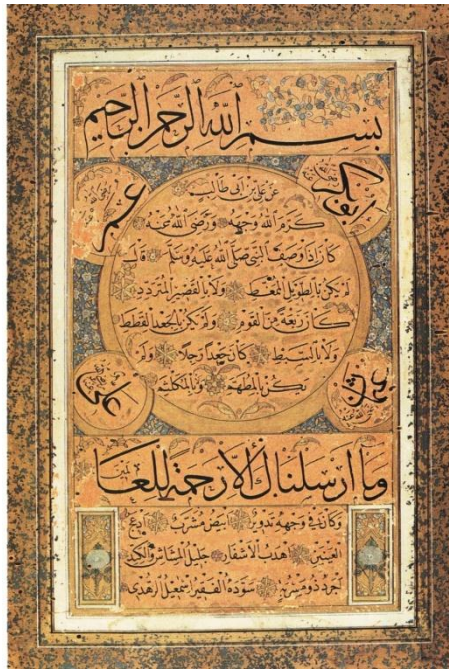 بسم الله الرحمن الرحيم
ابو بكر
عمر
عن على بن ابى طالب
كرم الله وجهه ورضى الله عنه
كان اذا وصف النبى صلى الله عليه وسلم قال
لم يكن بالطويل الممغط ولا بالقصير المتردد
كان ربعة من القوم ولم يكن بالجعد القطط
ولا بالسبط كان جعدا رجلا ولم
يكن بالمطهم ولا بالمكلثم
عثمان
على
وما ارسلناك الا رحمة للعالمين
وكان فى وجهه تدوير ابيض مشرب ادعج
العينين اهدب الاشفار جليل المشاش والكتد
اجرد ذو مسربة سوده الفقير اسمعيل الزهدى